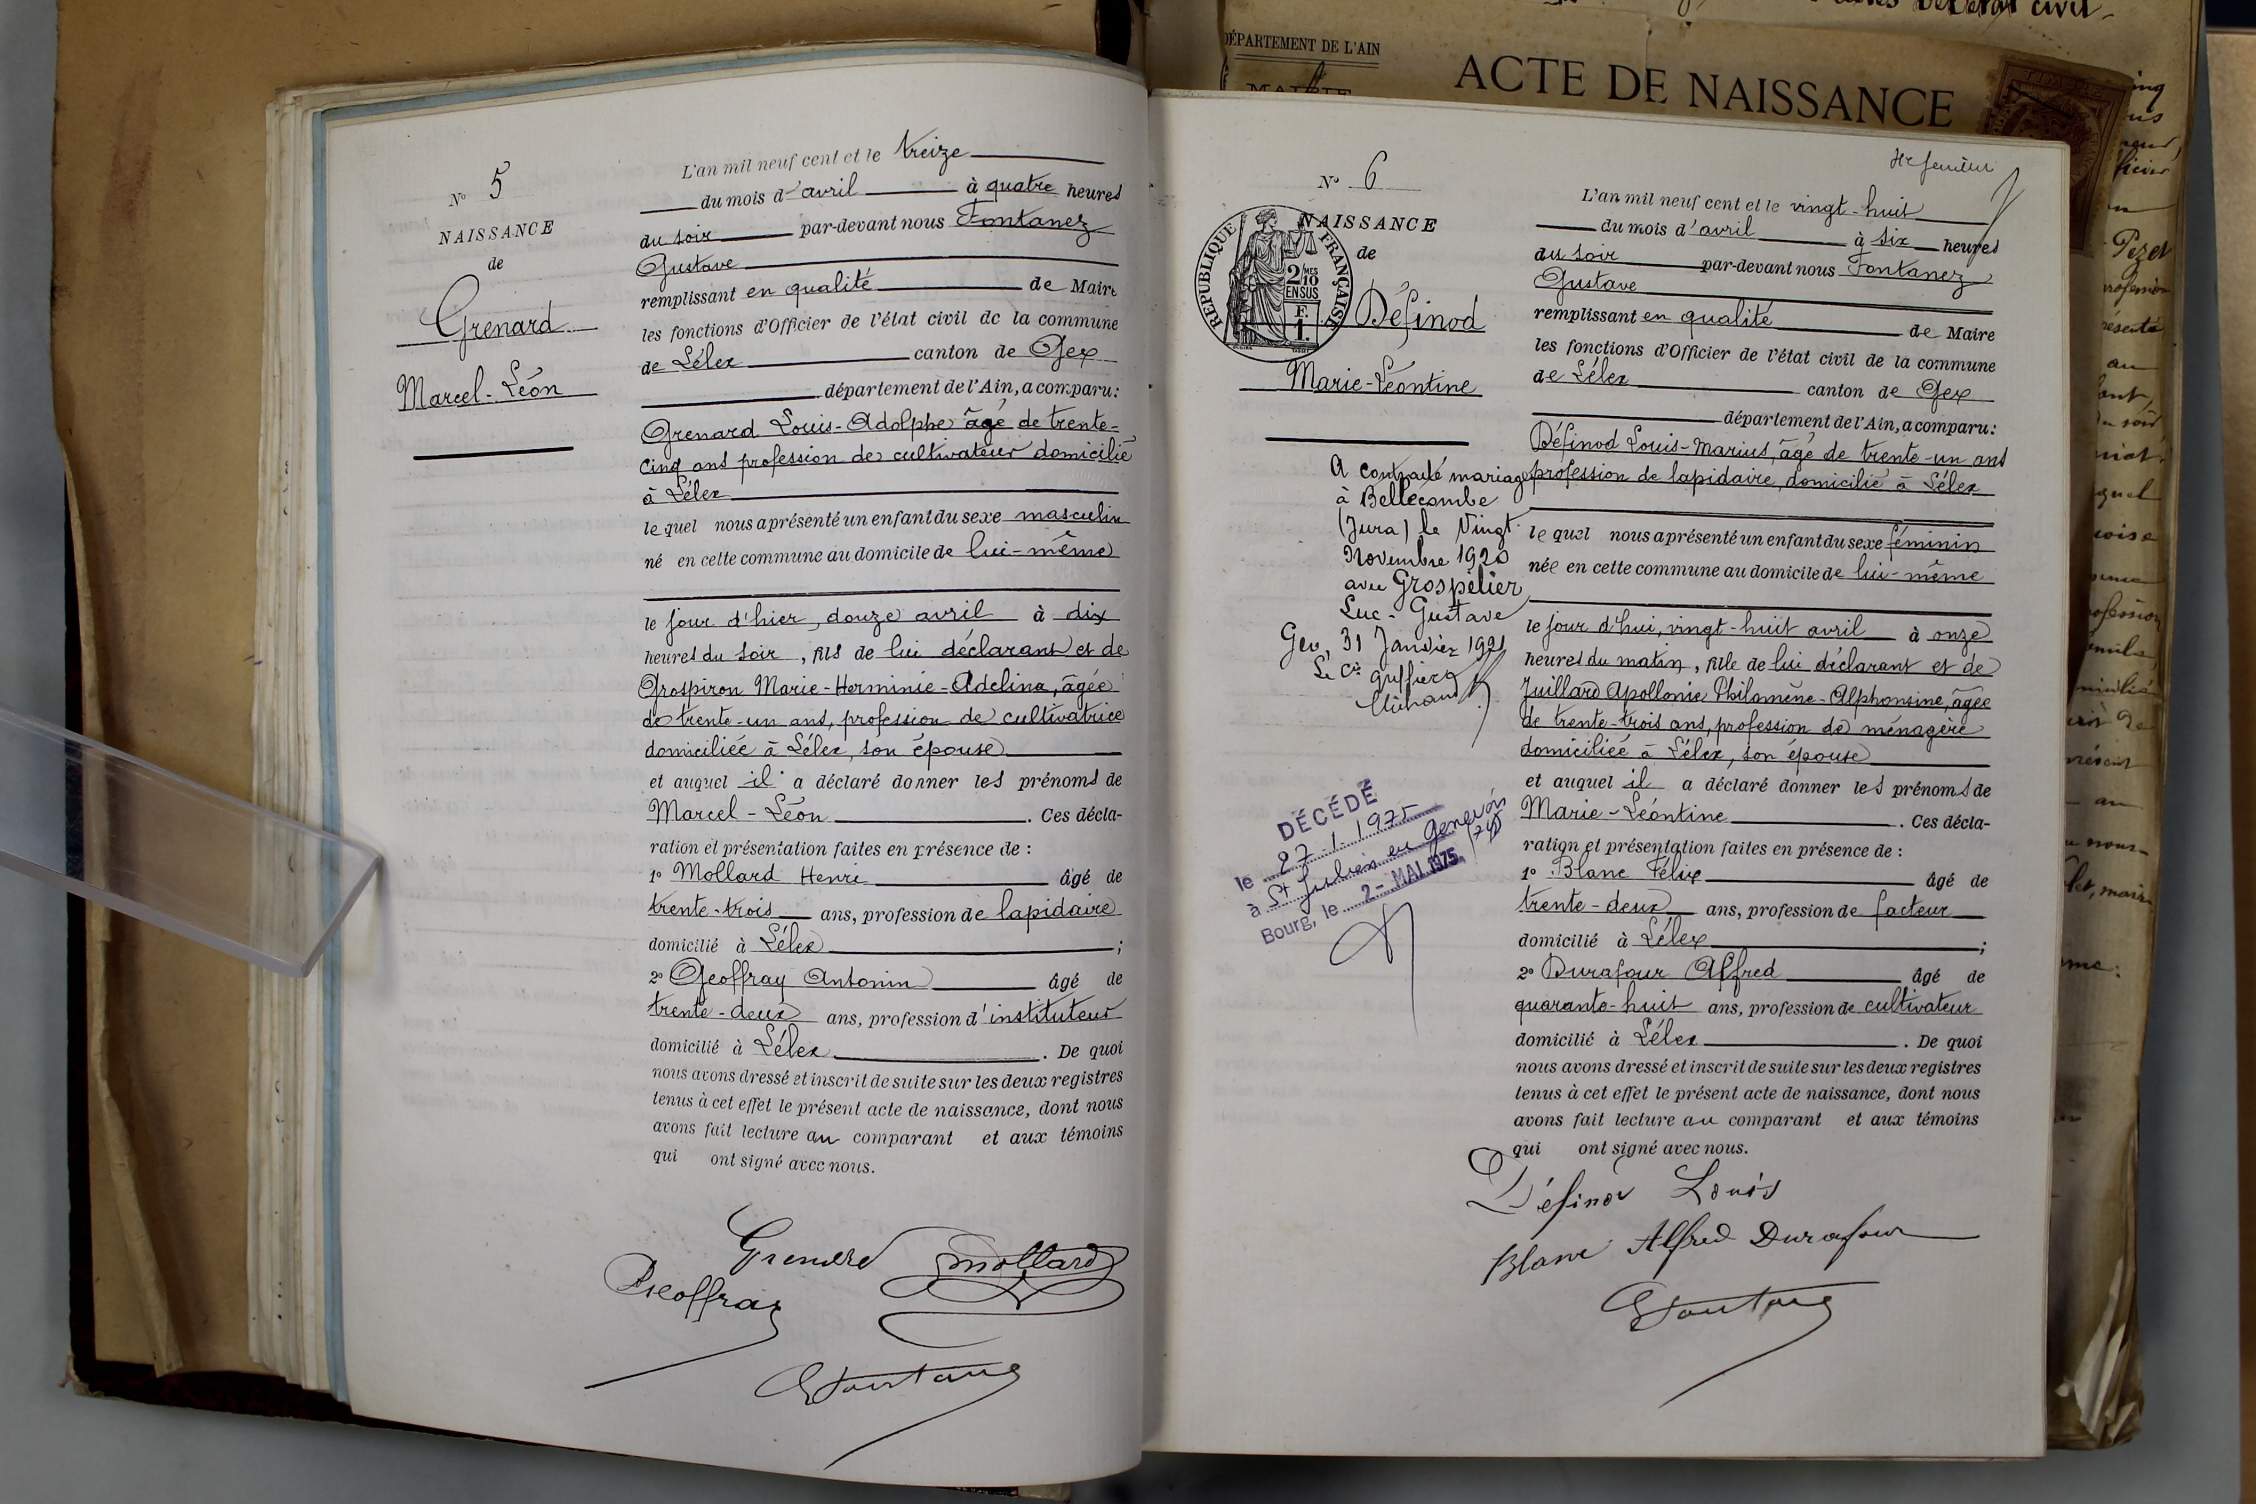 N° 5
NAISSANCE
de
Grenard
Marcel-Léon
L'an mil neuf cent et le treize
du mois d'avril à quatre heures
du soir par-devant nous Fontanez
Gustave
remplissant en qualité de Maire
les fonctions d'Officier de l'état civil de la commune
de Lélex canton de Gex
département de l'Ain, a comparu:
Grenard Louis-Adolphe âgé de trente-
cinq ans profession de cultivateur domicilié
à Lélex
lequel nous a présenté un enfant du sexe masculin
né en cette commune au domicile de lui-même
le jour d'hier, douze avril à dix
heures du soir, fils de lui déclarant et de
Grospiron Marie-Herminie-Adelina, âgée
de trente-un ans, profession de cultivatrice
domiciliée à Lélex, son épouse
et auquel il a déclaré donner les prénoms de
Marcel-Léon. Ces décla-
ration et présentation faites en présence de :
1° Mollard Henri âgé de
trente-trois ans, profession de lapidaire
domicilié à Lélex ;
2° Geoffray Antonin âgé de
trente-deux ans, profession d'instituteur
domicilié à Lélex. De quoi
nous avons dressé et inscrit de suite sur les deux registres
tenus à cet effet le présent acte de naissance, dont nous
avons fait lecture au comparant et aux témoins
qui ont signé avec nous.
Grenard Mollard
Geoffray
GFontanez
DÉPARTEMENT DE L'AIN
MAIRIE
ACTE DE NAISSANCE
N° 6
NAISSANCE
de
RÉPUBLIQUE FRANÇAISE
2/10 MES
EN SUS
1 F.
Définod
Marie-Léontine
A contracté mariage
à Bellecombe
(Jura) le Vingt
Novembre 1920
avec Grospélier
Luc-Gustave
Gex, 31 Janvier 1921
Le Cis Greffier
DÉCÉDÉ
le 27.1.1975
à St Julien en Genevois
(74)
Bourg, le 2 - MAI 1975
L'an mil neuf cent et le vingt-huit
du mois d'avril à six heures
du soir par-devant nous Fontanez
Gustave
remplissant en qualité de Maire
les fonctions d'Officier de l'état civil de la commune
de Lélex canton de Gex
département de l'Ain, a comparu:
Définod Louis-Marius, âgé de trente-un ans
profession de lapidaire, domicilié à Lélex
lequel nous a présenté un enfant du sexe féminin
née en cette commune au domicile de lui-même
le jour d'hui, vingt-huit avril à onze
heures du matin, fille de lui déclarant et de
Juillard Apollonie Philomène-Alphonsine, âgée
de trente-trois ans, profession de ménagère
domiciliée à Lélex, son épouse
et auquel il a déclaré donner les prénoms de
Marie-Léontine. Ces décla-
ration et présentation faites en présence de :
1° Blanc Félix âgé de
trente-deux ans, profession de facteur
domicilié à Lélex ;
2° Durafour Alfred âgé de
quarante-huit ans, profession de cultivateur
domicilié à Lélex. De quoi
nous avons dressé et inscrit de suite sur les deux registres
tenus à cet effet le présent acte de naissance, dont nous
avons fait lecture au comparant et aux témoins
qui ont signé avec nous.
Définod Louis
Blanc Alfred Durafour
GFontanez